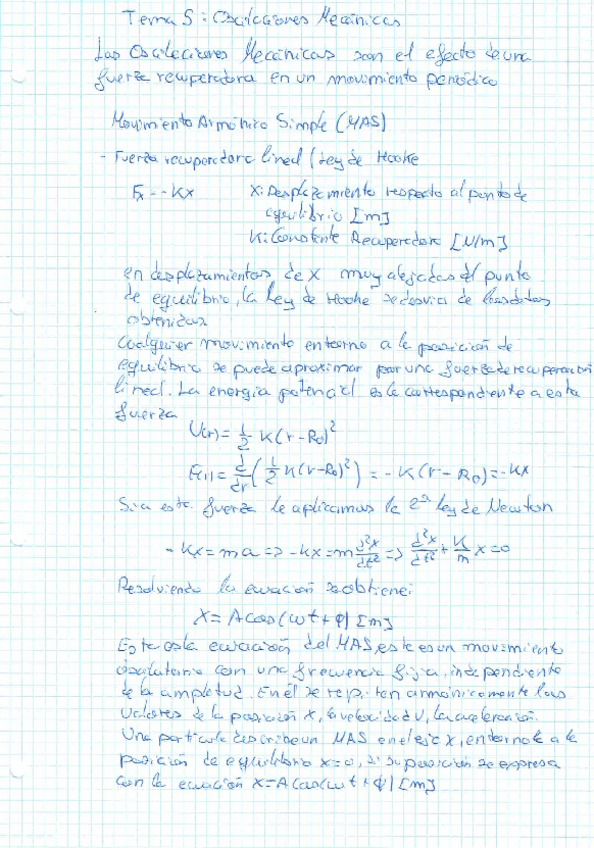 Tema 5: Oscilaciones Mecánicas
Las Oscilaciones Mecánicas son el efecto de una
fuerza recuperadora en un movimiento periódico
Movimiento Armónico Simple (MAS)
- Fuerza recuperadora lineal (Ley de Hooke
Fx = -Kx X: Desplazamiento respecto al punto de
equilibrio [m]
K: Constante Recuperadora [N/m]
en desplazamientos de X muy alejados del punto
de equilibrio, la Ley de Hooke se desvia de los datos
obtenidos
Cualquier movimiento entorno a la posición de
equilibrio se puede aproximar por una fuerza de recuperación
lineal. La energía potencial es la correspondiente a esta
fuerza
U(r) = 1/2 K(r-R0)²
F(r) = d/dr (1/2 K(r-R0)²) = -K(r-R0) = -Kx
Si a esta fuerza le aplicamos la 2ª Ley de Newton
-Kx = ma => -Kx = m d²x/dt² => d²x/dt² + K/m x = 0
Resolviendo la ecuación se obtiene:
X = A cos(wt+φ) [m]
Esta es la ecuación del MAS, este es un movimiento
oscilatorio con una frecuencia fija, independiente
de la amplitud. En él se repiten armónicamente los
valores de la posición x, la velocidad v, la aceleración.
Una partícula describe un MAS en el eje x, entorno a la
posición de equilibrio x=0, si su posición se expresa
con la ecuación X=A cos(wt+φ) [m]